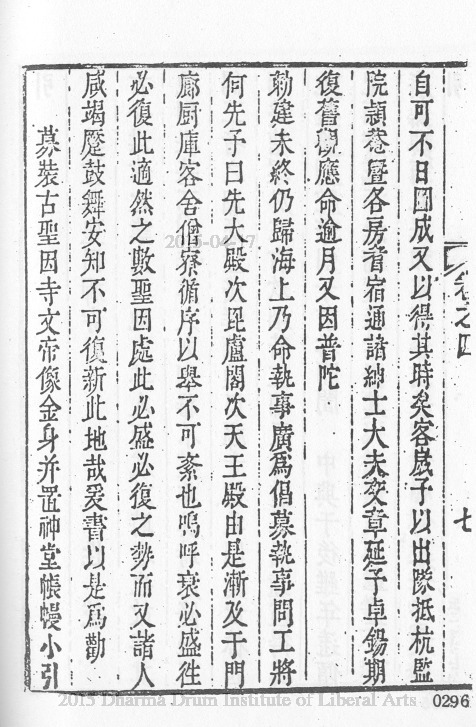 卷之四 七
自可不日圖成又以得其時矣客歲予以出隊抵杭監
院頴菴暨各房耆宿通諸紳士大夫交章延予卓錫期
復舊觀應命逾月又因普陀
勅建未終仍歸海上乃命執事廣為倡募執事問工將
何先予曰先大殿次毘盧閣次天王殿由是漸及于門
廊厨庫客舍僧寮循序以舉不可紊也嗚呼衰必盛徃
必復此適然之數聖因處此必盛必復之勢而又諸人
咸竭蹷鼓舞安知不可復新此地哉爰書以是為勸
募裝古聖因寺文帝像金身并置神堂帳幔小引
2015-04-17
2015 Dharma Drum Institute of Liberal Arts
0296